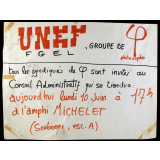 UNEF
FGEL, GROUPE DE φ
philosophie
tous les syndiqués de φ sont invités au
Conseil Administratif qui se tiendra
aujourd'hui lundi 10 Juin à 17h
à l'amphi MICHELET
(Sorbonne, esc. A)